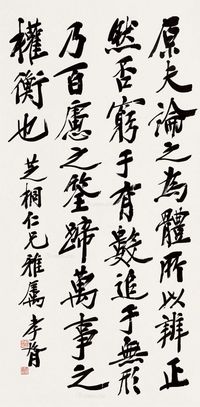 原夫論之為體所以辨正
然否窮于有數追于無形
乃百慮之筌蹄萬事之
權衡也
芝桐仁兄雅属
李晉